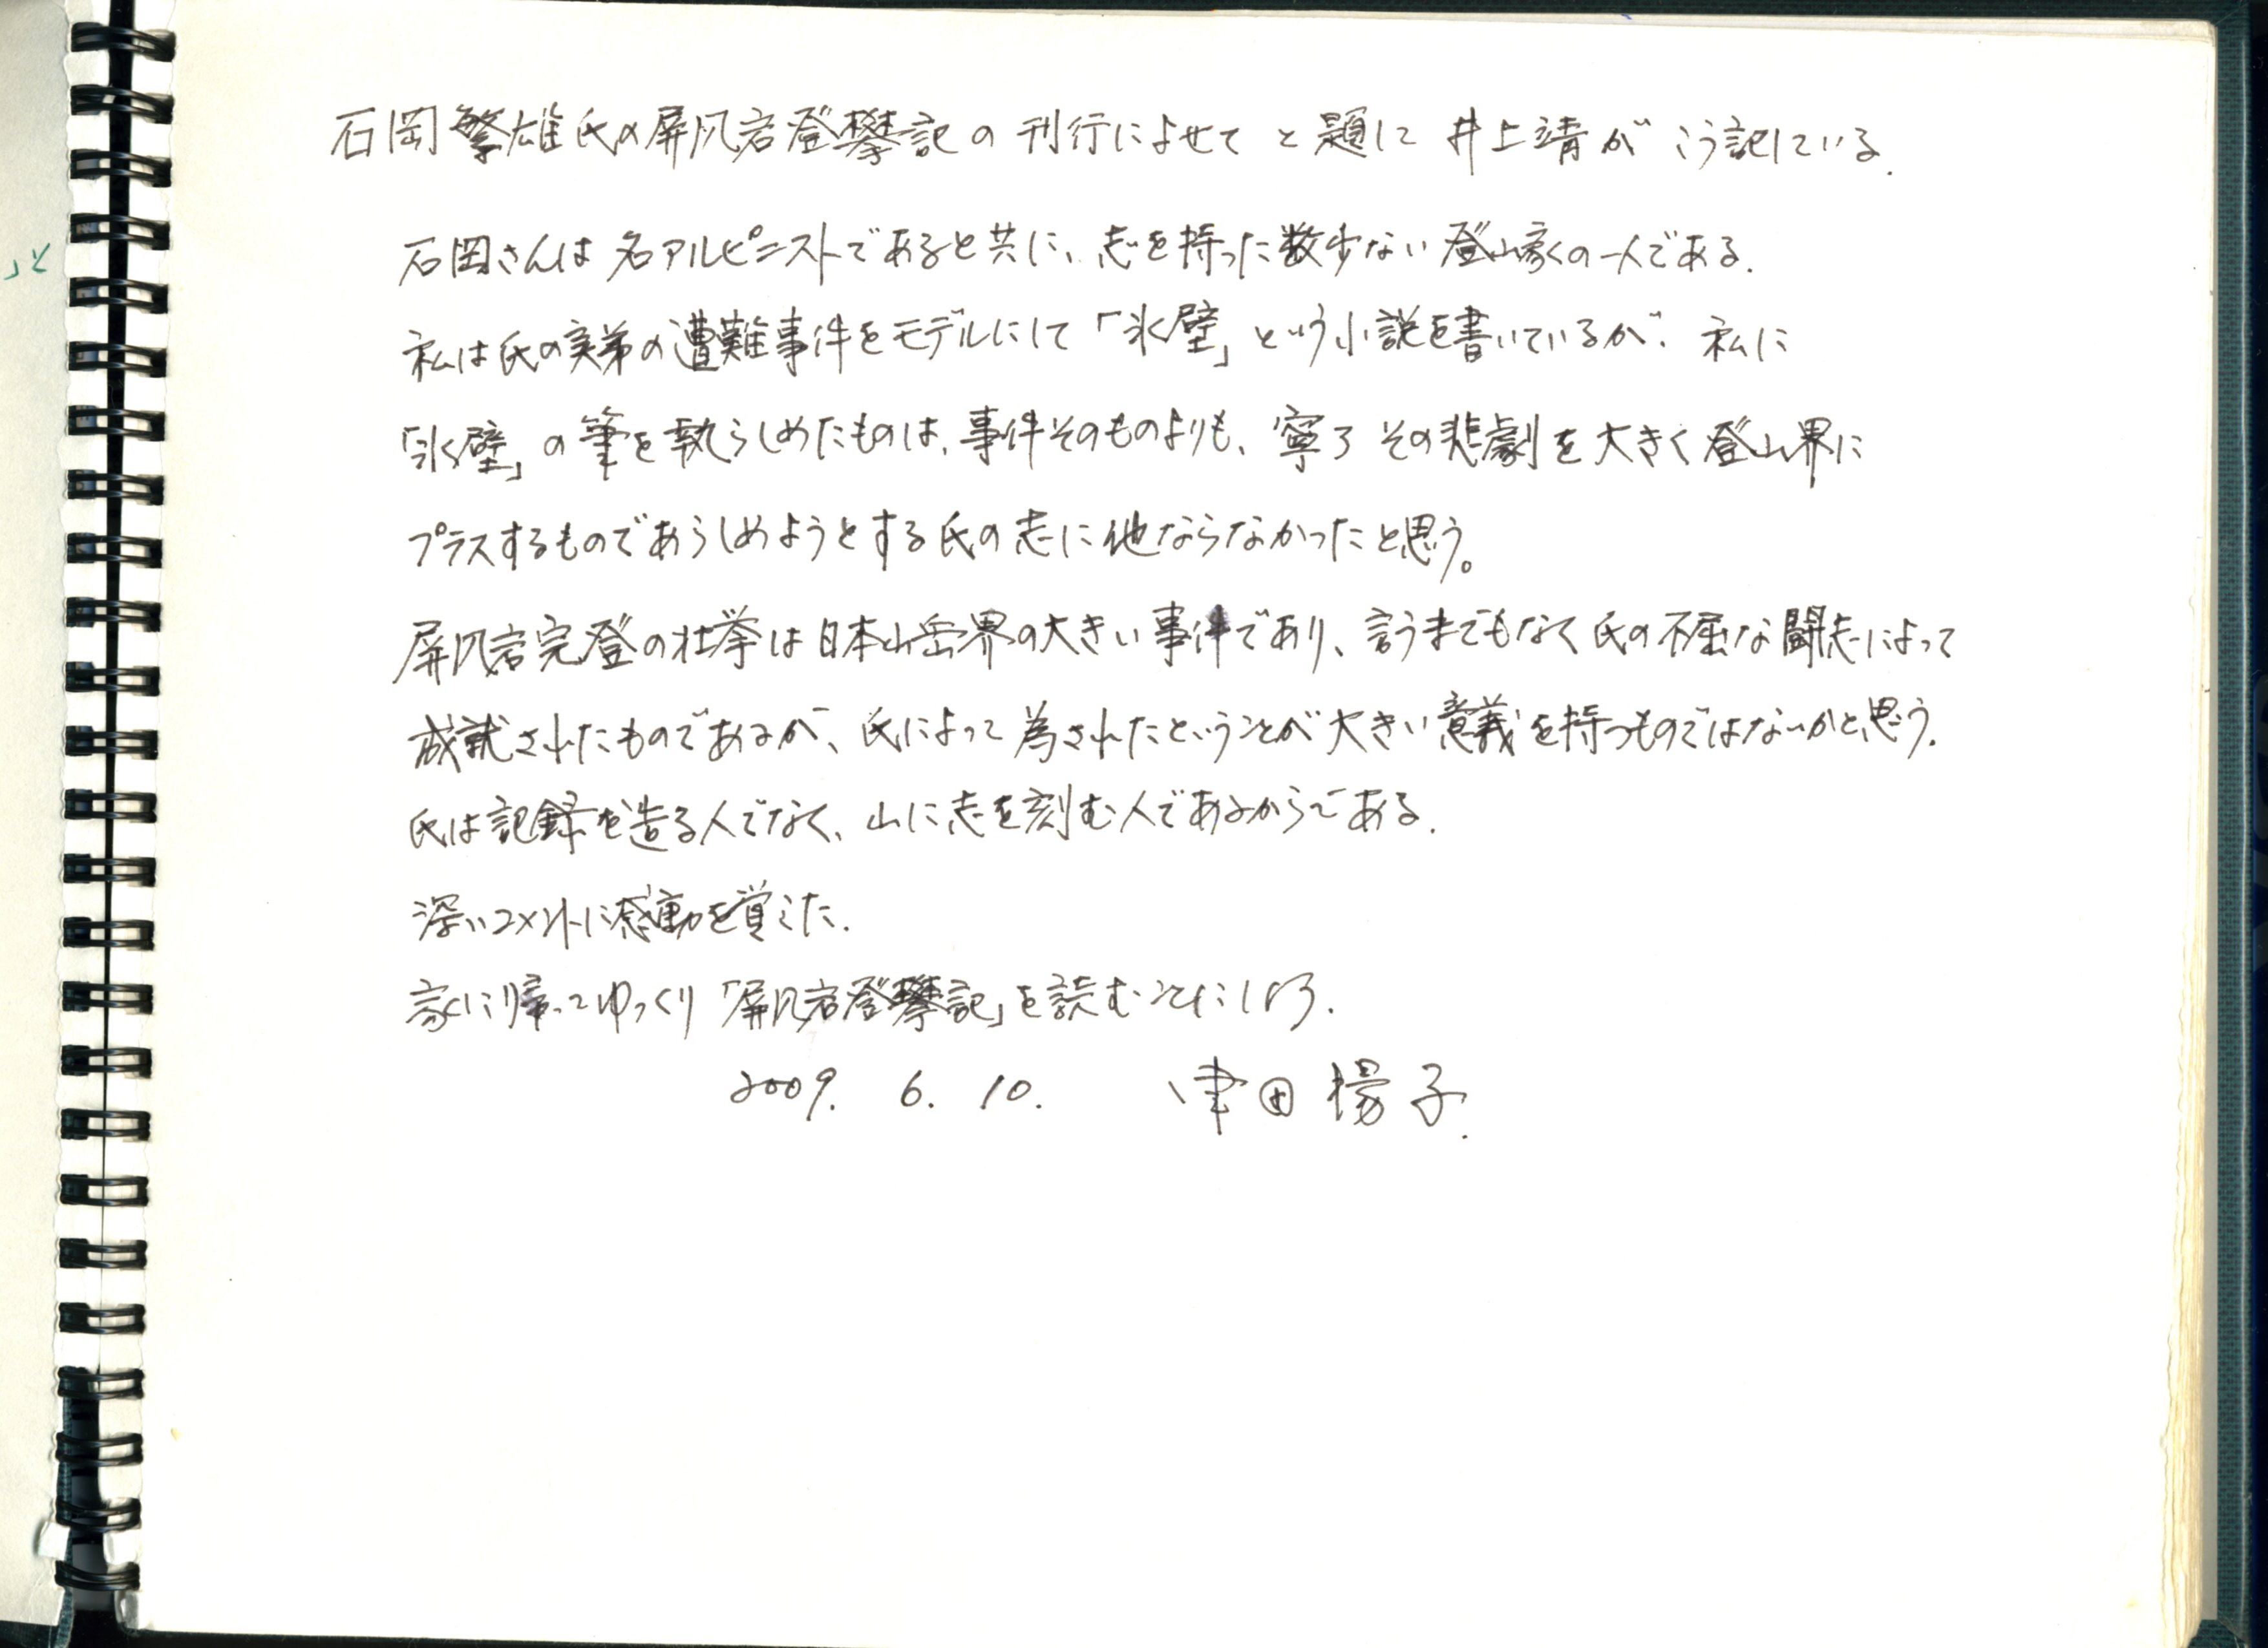 石岡繁雄氏の屏風岩登攀記の刊行によせて と題して 井上靖が こう記している.
石岡さんは名アルピニストであると共に、志を持った数少ない登山家の一人である.
私は氏の実弟の遭難事件をモデルにして「氷壁」という小説を書いているが、私に
「氷壁」の筆を執らしめたものは、事件そのものよりも、寧ろその悲劇を大きく登山界に
プラスするものであらしめようとする氏の志に他ならなかったと思う。
屏風岩完登の壮挙は日本山岳界の大きい事件であり、言うまでもなく氏の不屈な闘志によって
成就されたものであるが、氏によって為されたということが大きい意義を持つものではないかと思う.
氏は記録を造る人でなく、山に志を刻む人であるからである.
深いコメントに感動を覚えた.
家に帰ってゆっくり「屏風岩登攀記」を読むことにしよう.
2009. 6. 10. 津田揚子.
」と